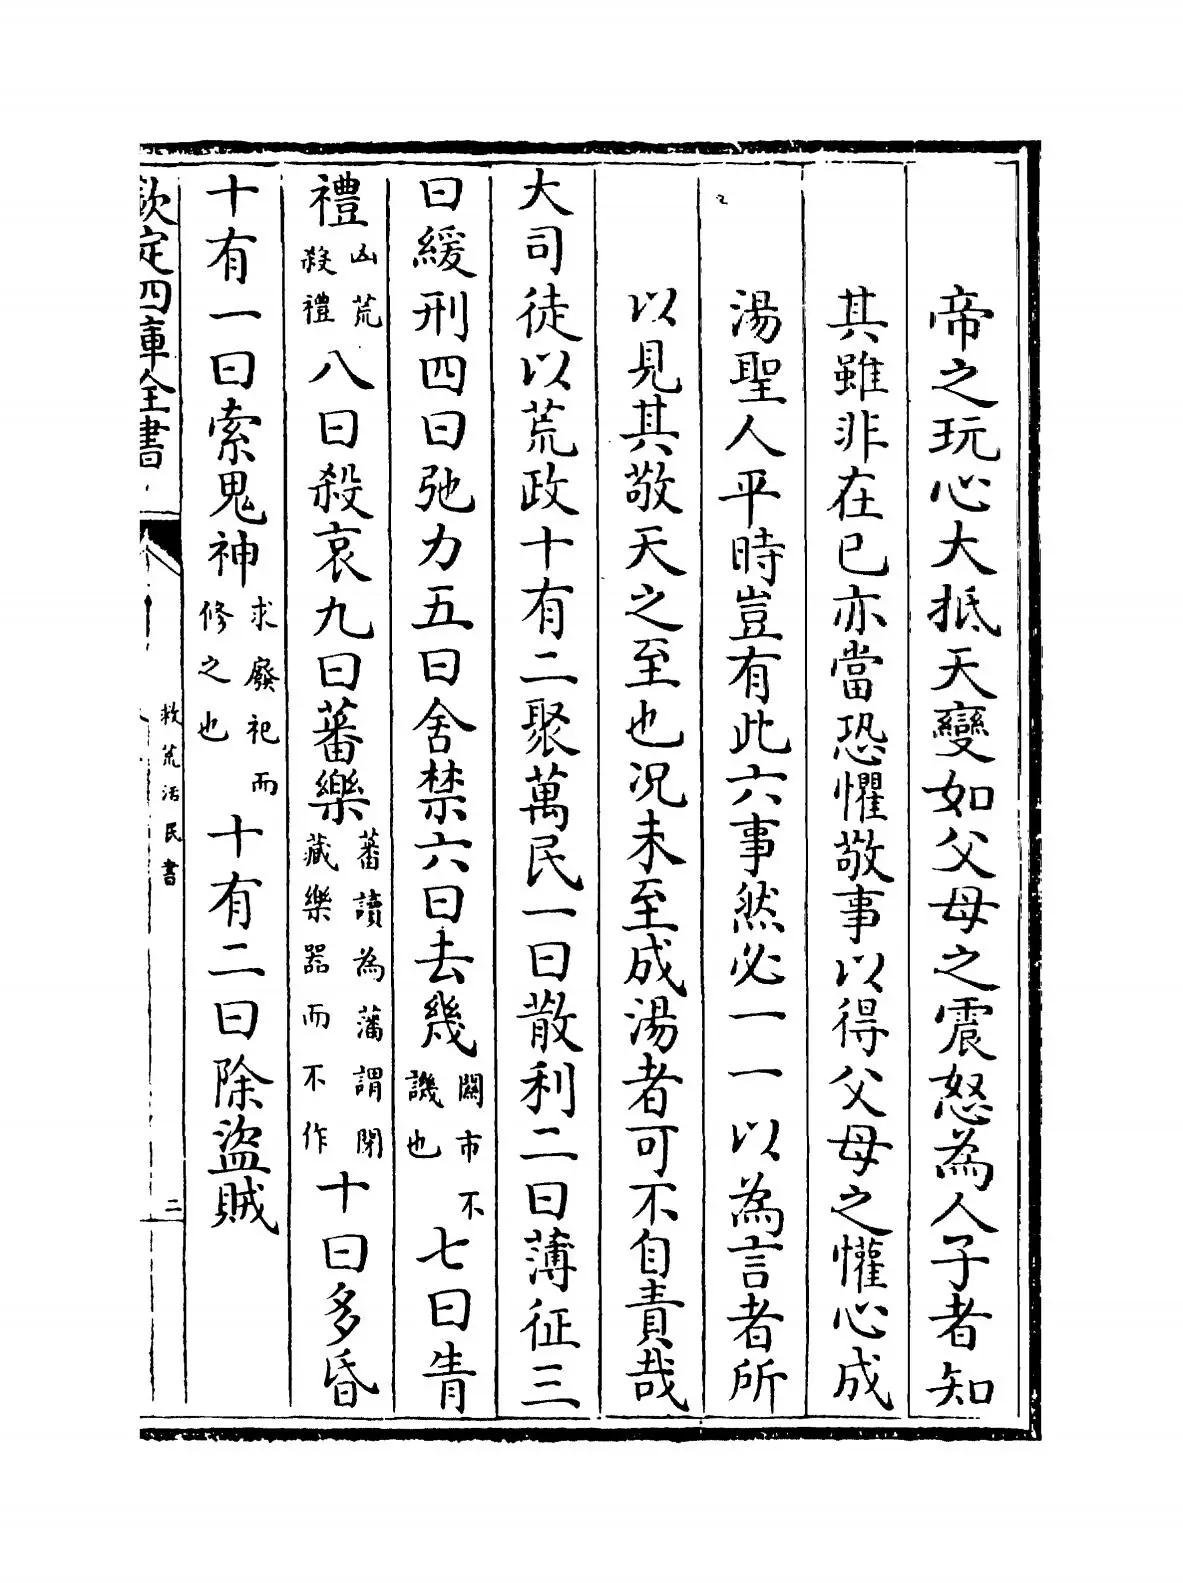 帝之玩心大抵天變如父母之震怒為人子者知
其雖非在已亦當恐懼敬事以得父母之懽心成
湯聖人平時豈有此六事然必一一以為言者所
以見其敬天之至也况未至成湯者可不自責哉
大司徒以荒政十有二聚萬民一曰散利二曰薄征三
曰緩刑四曰弛力五曰舍禁六曰去幾關市不譏也七曰眚
禮凶荒殺禮八曰殺哀九曰蕃樂蕃讀為藩謂閉藏樂器而不作十曰多昏
十有一曰索鬼神求廢祀而修之也十有二曰除盜賊
欽定四庫全書
救荒活民書
二